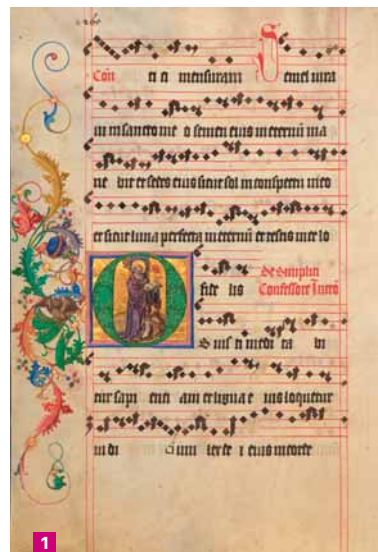 ti a mensuram Semel iura
ui in sancto me o semen eius in eternū ma
ne bit et sedes eius sicut sol in conspectu meo
et sicut luna perfecta in eternū et testis in celo
fide lis De Simplici
Confessore Intro
O S iusti medi ta bi
tur sapi enti am et lingua e ius loquetur
iu di cium lex de i eius in corde
1